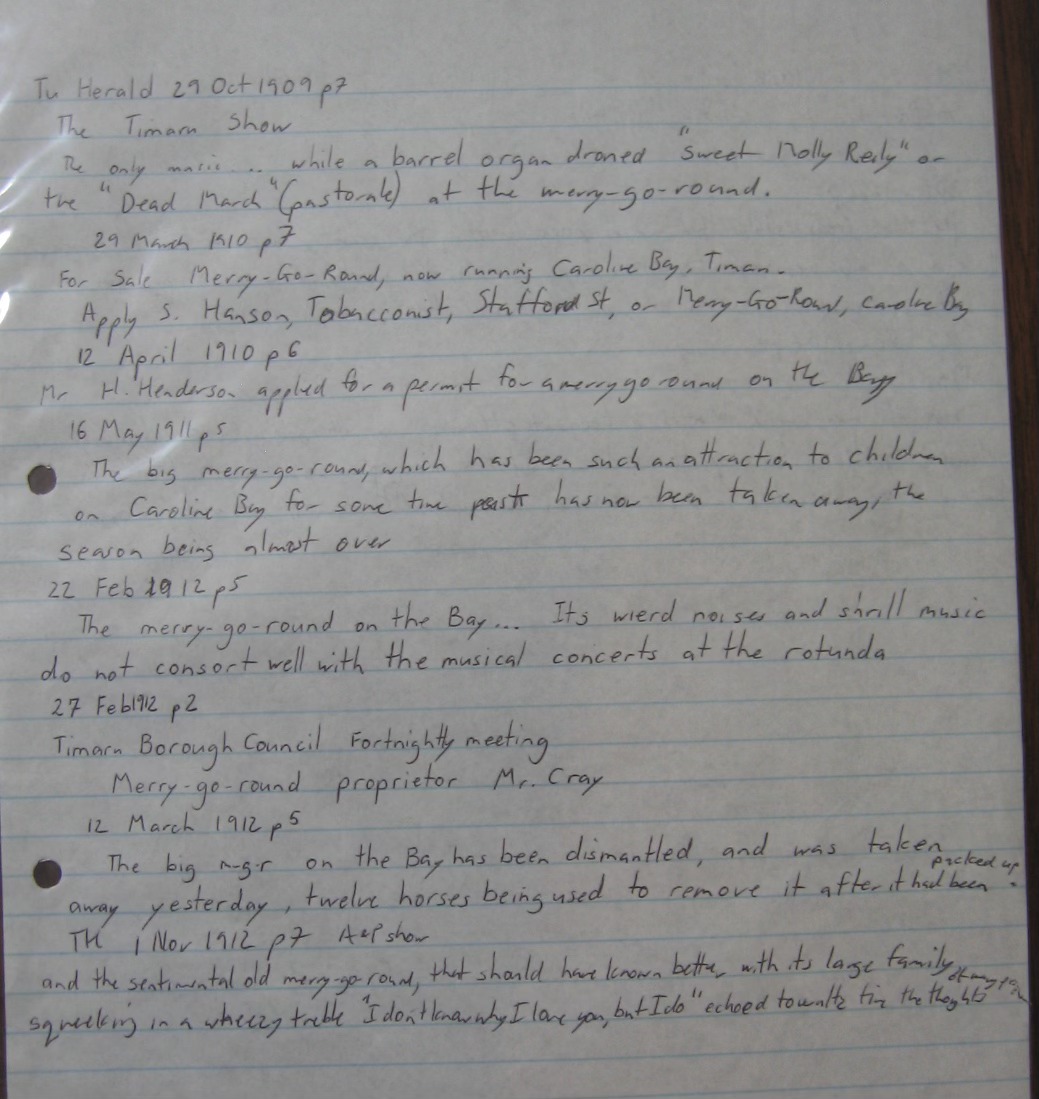 Tu Herald 29 Oct 1909 p7
The Timaru Show
The only music ... while a barrel organ droned "Sweet Molly Reily" or
the "Dead March" (pastorale) at the merry-go-round.
29 March 1910 p7
For Sale Merry-Go-Round, now running Caroline Bay, Timaru.
Apply S. Hanson, Tobacconist, Stafford St, or Merry-Go-Round, Caroline Bay
12 April 1910 p6
Mr H. Henderson applied for a permit for a merry go round on the Bay
16 May 1911 p5
The big merry-go-round, which has been such an attraction to children
on Caroline Bay for some time past has now been taken away, the
season being almost over
22 Feb 1912 p5
The merry-go-round on the Bay... Its wierd noises and shrill music
do not consort well with the musical concerts at the rotunda
27 Feb 1912 p2
Timaru Borough Council Fortnightly meeting
Merry-go-round proprietor Mr. Cray
12 March 1912 p5
The big m-g-r on the Bay has been dismantled, and was taken
away yesterday, twelve horses being used to remove it after it had been packed up.
TH 1 Nov 1912 p7 A&P show
and the sentimental old merry-go-round, that should have known better, with its large family
squeeking in a wheezy treble "I don't know why I love you, but I do" echoed to waltz time the thoughts